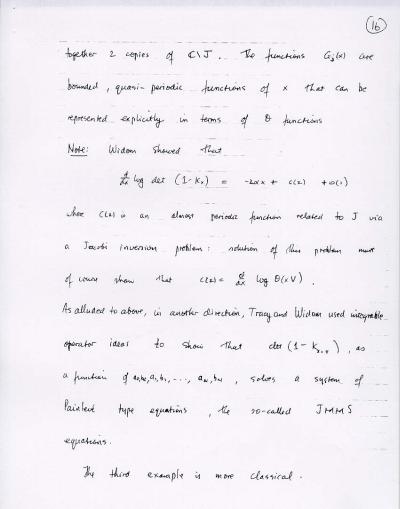 16
together 2 copies of C\J. The functions G_j(x) are
bounded, quasi-periodic functions of x that can be
represented explicitly in terms of θ functions
Note: Widom showed that
d/dx log det (1-K_x) = -2αx + c(x) + o(1)
where c(x) is an almost periodic function related to J via
a Jacobi inversion problem: solution of this problem must
of course show that c(x) = d/dx log θ(xV).
As alluded to above, in another direction, Tracy and Widom used integrable
operator ideas to show that det (1-K), as
a function of a₀, b₀, a₁, b₁, ..., solves a system of
Painlevé type equations, the so-called JMMS
equations.
The third example is more classical.